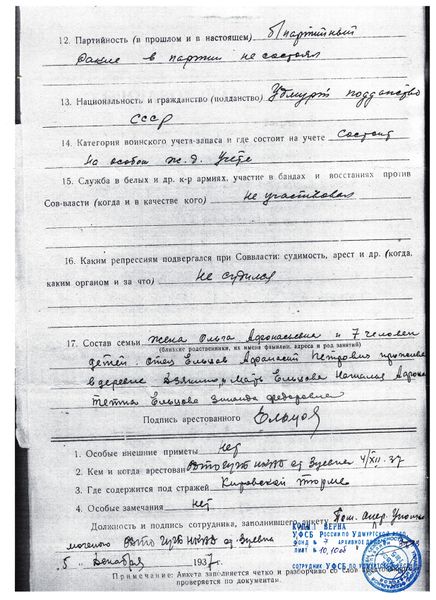 12. Партийность (в прошлом и в настоящем) б/партийный
Ранее в партии не состоял
13. Национальность и гражданство (подданство) Удмурт подданство
СССР
14. Категория воинского учета-запаса и где состоит на учете Состоит
на особом ж.д. учете
15. Служба в белых и др. к-р армиях, участие в бандах и восстаниях против
Сов-власти (когда и в качестве кого) не участвовал
16. Каким репрессиям подвергался при Соввласти: судимость, арест и др. (когда,
каким органом и за что) Не судился
17. Состав семьи жена Ольга Афанасьевна и 7 человек
(близкие родственники, их имена фамилии, адреса и род занятий)
детей. отец Ельцов Афанасий Петрович
в деревне мать Ельцова Наталия
Тетка Ельцова Зинаида Федоровна
Подпись арестованного Ельцов
1. Особые внешние приметы Нет
2. Кем и когда арестован ДТО ГУГБ НКВД ст Зуевка 4/XII-37
3. Где содержится под стражей Кировской тюрьме
4. Особые замечания нет
Должность и подпись сотрудника, заполнившего анкету Пом. Опер.
ДТО ГУГБ НКВД ст Зуевка
„5" Декабря 1937 г.
Примечание: Анкета заполняется четко и разборчиво со слов
проверяется по документам.
КОПИЯ ВЕРНА
УФСБ России по Удмуртской
ФОНД № 7 АРХИВНОЕ
ЛИСТ № 10, 10об
СОТРУДНИК УФСБ ПО